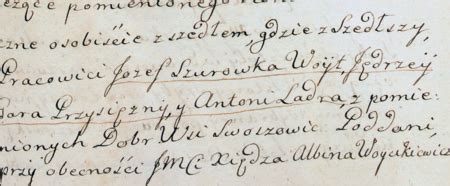 czące pomienionego
czne osobiście zszedłem, gdzie zszedłszy,
Pracowici Jozef Szurowka Woyt, Jędrzey
Gara Przysięzny, y Antoni Ladra, z pomie:
nionych Dobr Wsi Swoszowic Poddani,
przy obecności JMCi Xiędza Albina Woycikiewicz